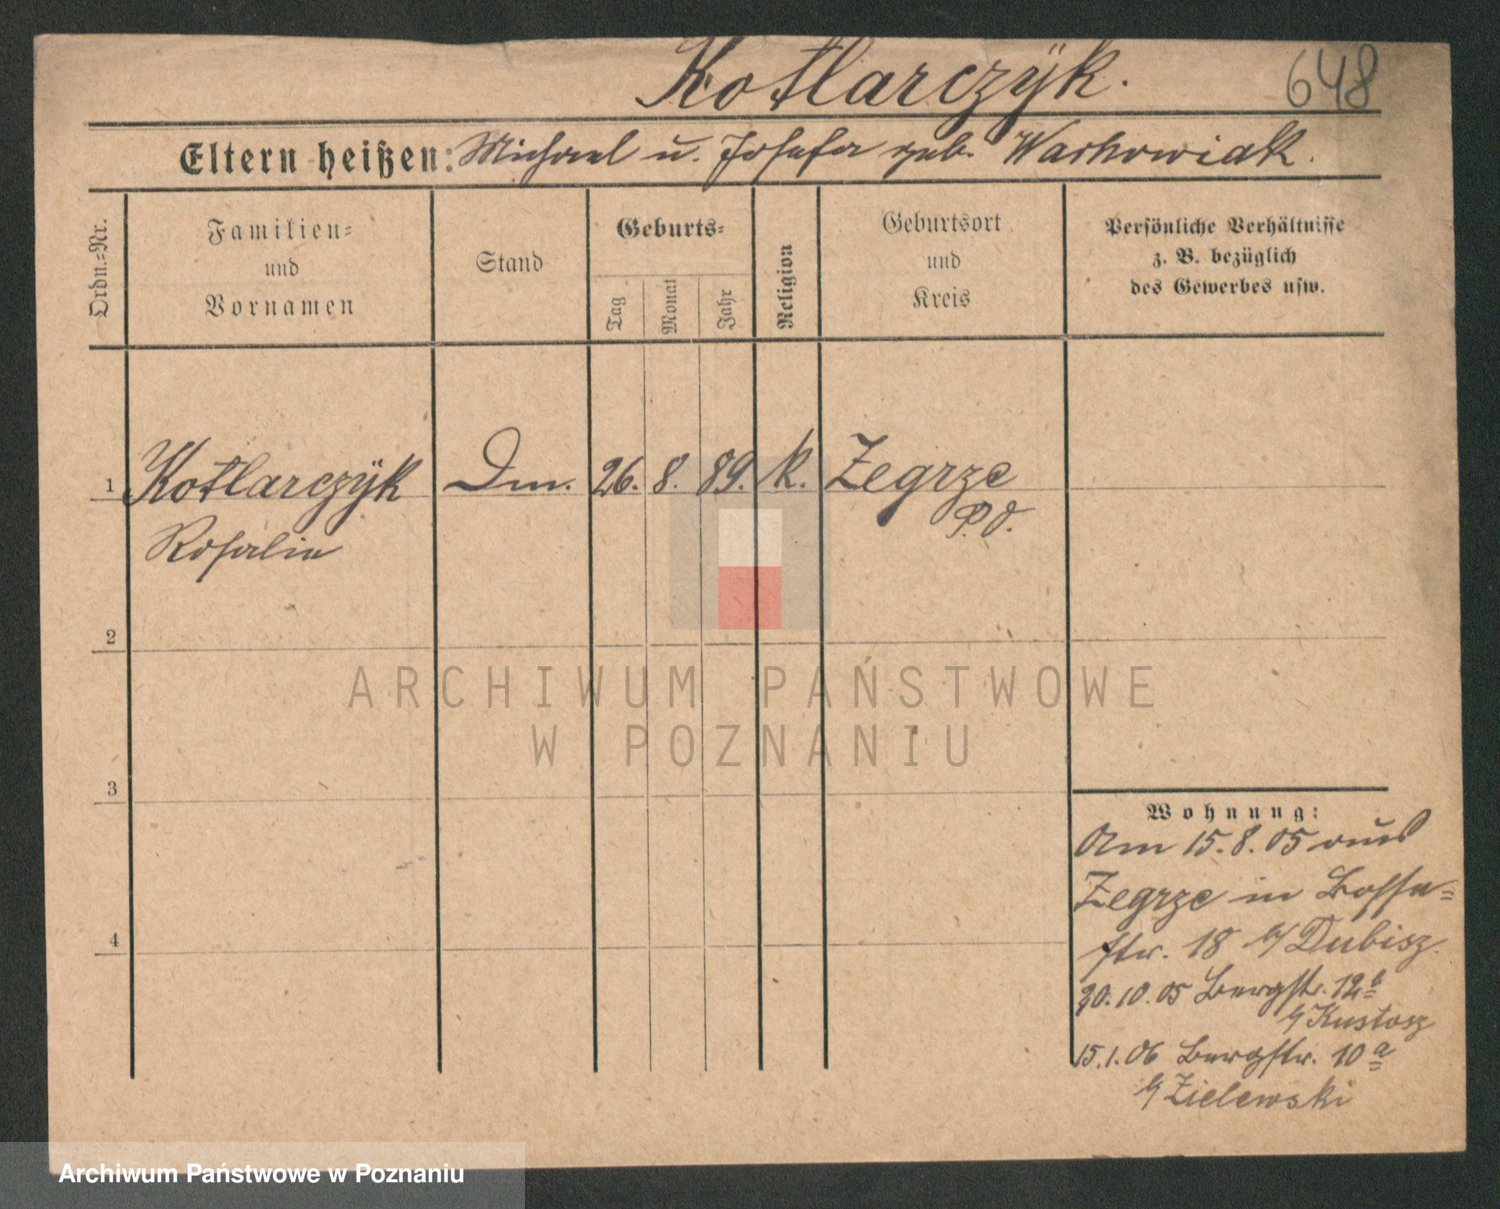 Kotlarczÿk.
648
Eltern heißen: Michael u. Josefa geb. Warkowiak.
Ordn.-Nr.
Familien-
und
Vornamen
Stand
Geburts-
Tag
Monat
Jahr
Religion
Geburtsort
und
Kreis
Persönliche Verhältnisse
z. B. bezüglich
des Gewerbes usw.
1 Kotlarczÿk Dm. 26. 8. 89. k. Zegrze
Rosalie P.O.
2
3
4
Wohnung:
Am 15.8.05 aus
Zegrze in
str. 18 b/ Dubisz.
20.10.05 Bergstr. 12b
b/ Kustosz
15.1.06 Bergstr. 10a
b/ Zielewski
ARCHIWUM PAŃSTWOWE
W POZNANIU
Archiwum Państwowe w Poznaniu